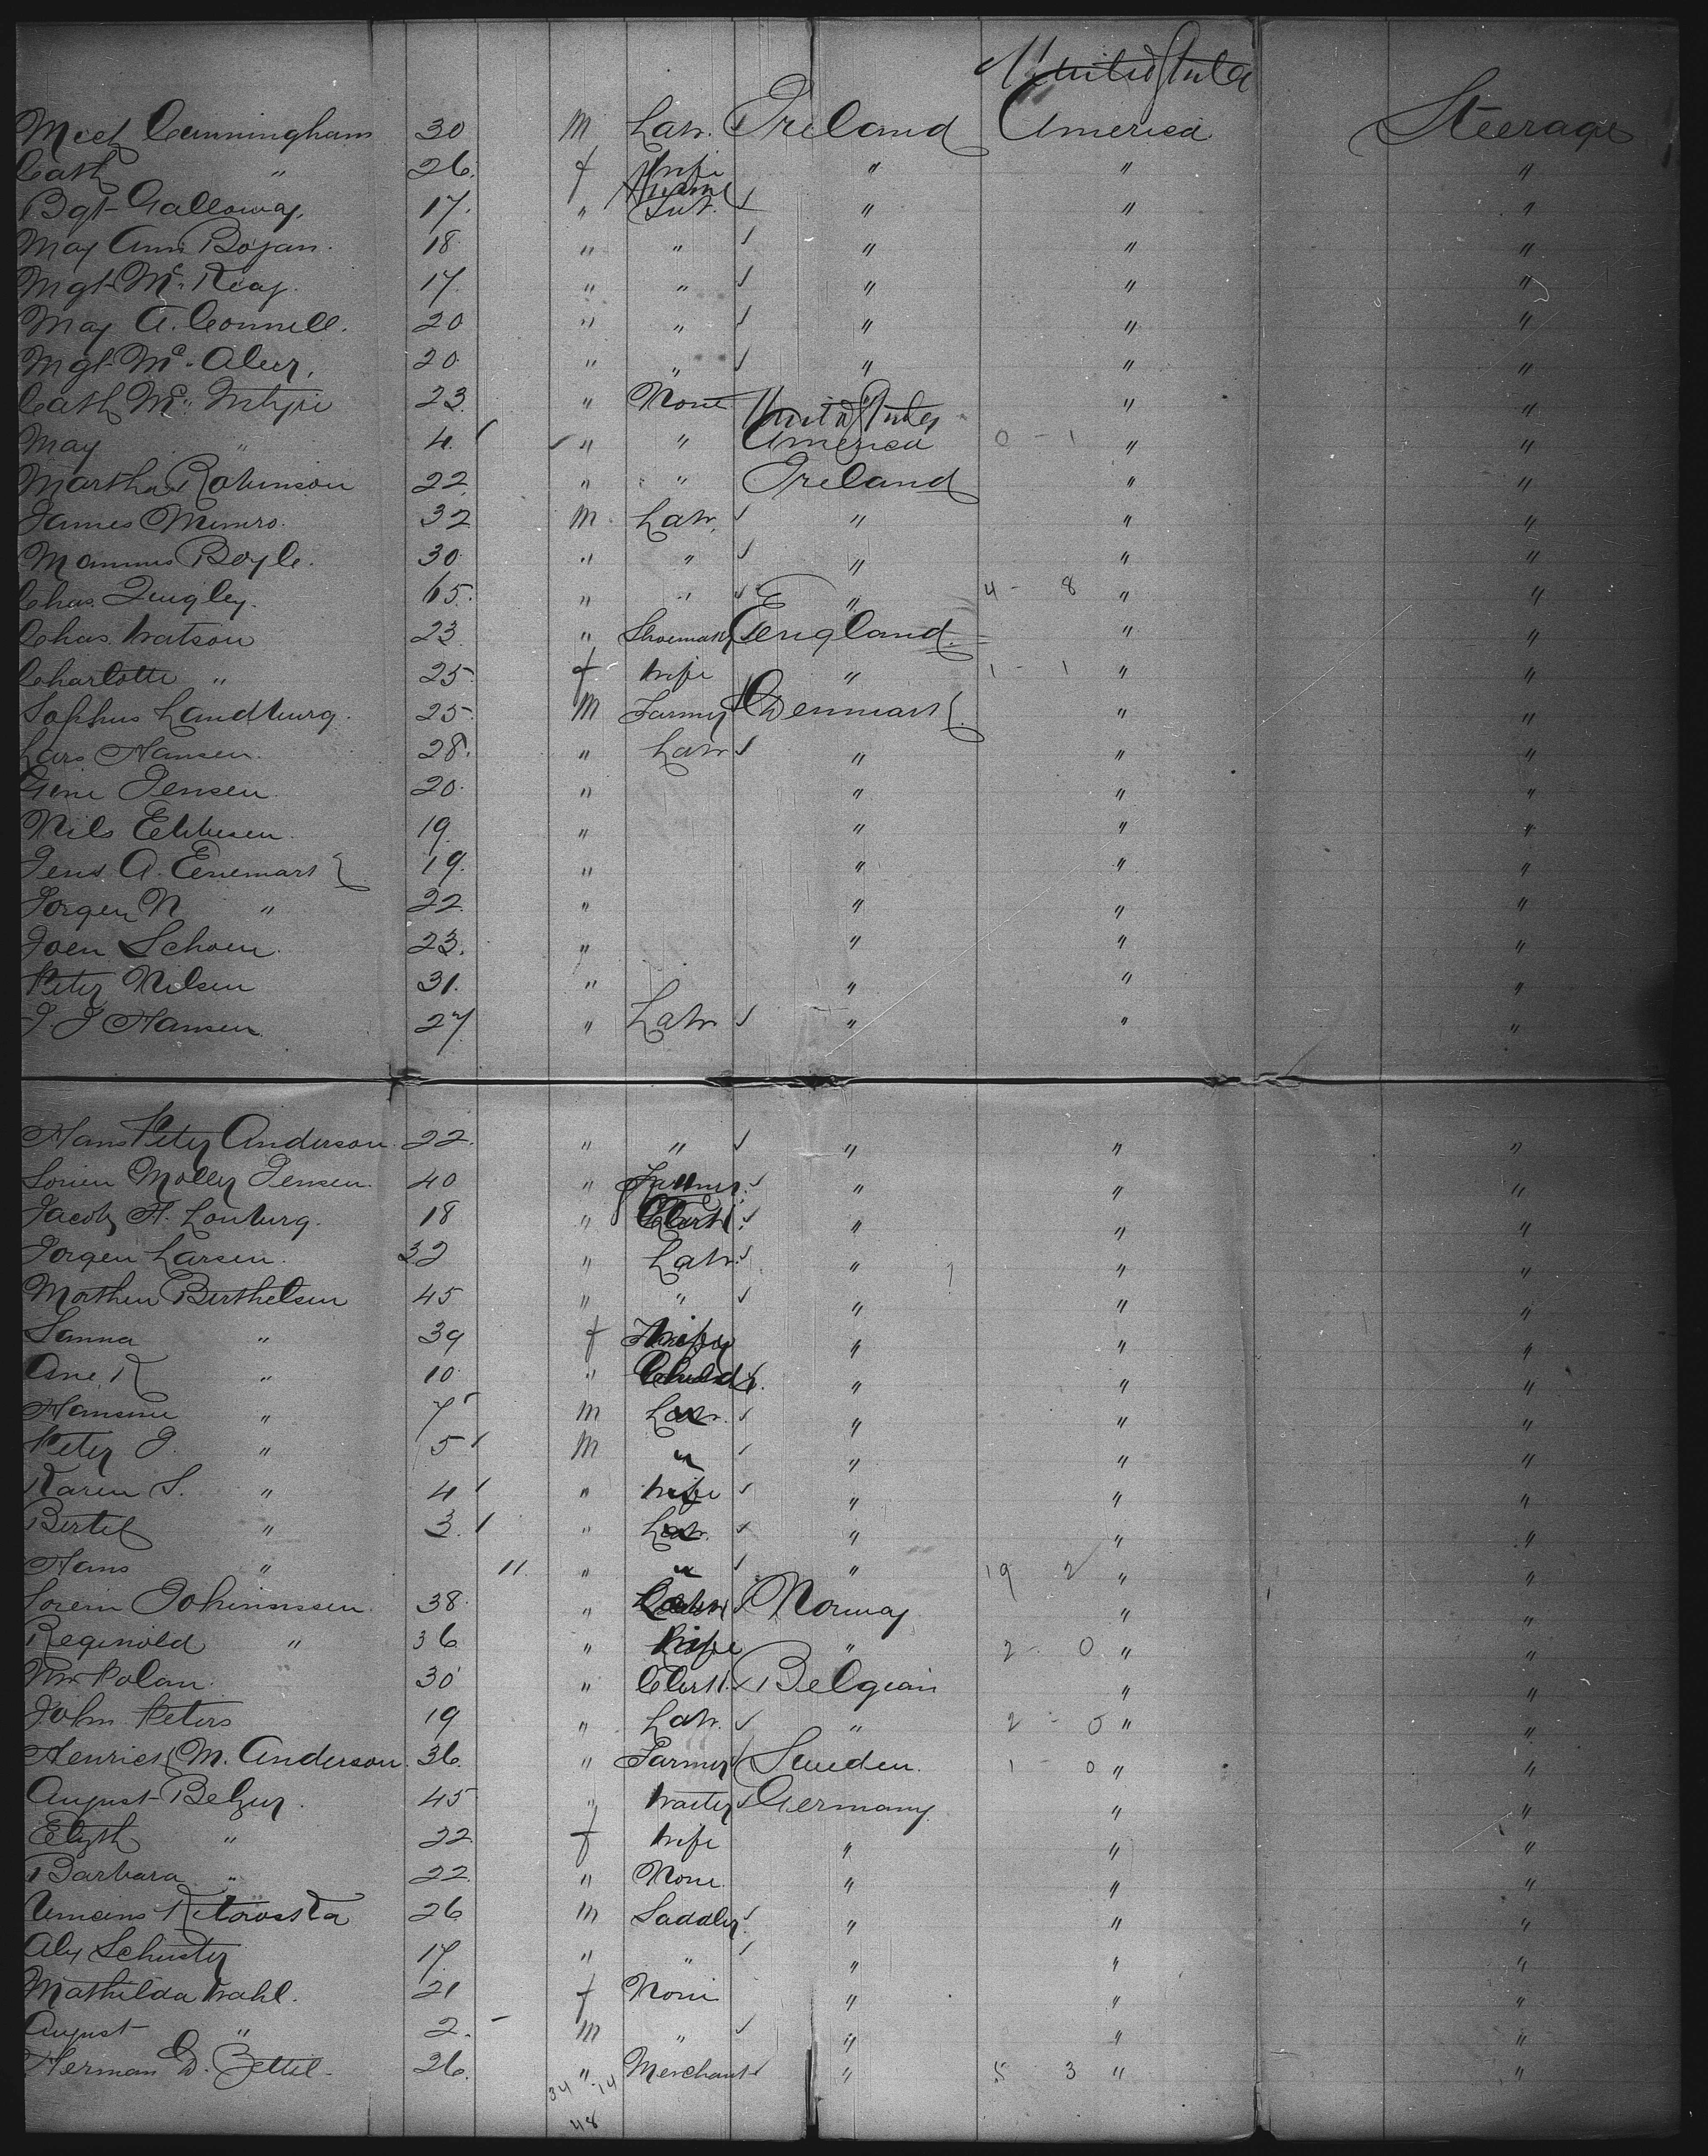 United States
Mich Cunningham 30 M Labr. Ireland America Steerage
Cath " 26. f Wife " " "
Bgt Galloway. 17. " Sert. ✓ " " "
May Ann Bogan. 18 " " ✓ " " "
Mgt Mc. Keay. 17. " " ✓ " " "
May A. Connell. 20 " " ✓ " " "
Mgt Mc. Aleer, 20. " " ✓ " " "
Cath Mc. Intyre 23. " None " " "
United States
May " 4. " " America 0 - 1 " "
Martha Robinson 22 " " Ireland " "
James Munro. 32 M Labr. ✓ " " "
Mannus Boyle. 30 " " ✓ " " "
Chas. Quigley. 65. " " ✓ " 4 - 8 " "
Chas. Watson 23 " Shoemaker England. " "
Charlotte " 25 f Wife " 1 - 1 " "
Sophus Landburg. 25. M Farmer Denmark. " "
Lars Hansen. 28. " Labr ✓ " " "
Jensen 20. " " " "
Nils Ebbesen. 19 " " " "
Jens A. Enemark 19. " " " "
Jorgen N " 22 " " " "
Joen Schoen. 23. " " " "
Peter Nilsen 31. " " " "
J. J Hansen 27 " Labr ✓ " " "
Hans Peter Anderson. 22. " " ✓ " " "
Soren Moller Jensen. 40 " Farmer. ✓ " " "
Jacob H. Lonburg. 18 " Clerk. ✓ " " "
Jorgen Larsen. 32 " Labr. ✓ " " "
Morthen Berthelsen 45 " " ✓ " " "
Sanna " 39 f Wife " " "
Ane. K " 10. " Child " " "
Hansine " 7 M Labr. ✓ " " "
Peter J. " 5 M " ✓ " " "
Karen S. " 4 " Wife ✓ " " "
Bertel " 3. " Labr. ✓ " " "
Hans " 11. " " ✓ " 19 2 " "
Soren Johinnssen. 38. " Norway " "
Reginold " 36 " Wife " 2 - 0 " "
Wm Polan. 30 " Clerk. Belgian " "
John Peters 19 " Labr. ✓ " 2 - 0 " "
Henrick M. Anderson. 36. " Farmer Sweden. 1 0 " "
August Belzer. 45 " Waiter ✓ Germany. " "
Elizth " 22 f Wife " " "
Barbara " 22. " None. " " "
26 M Saddler. ✓ " " "
Alex Schuster 17. " " ✓ " " "
Mathilda Wahl. 21 f None " " "
August " 2. - M " ✓ " " "
Herman D. Zettel. 26. " Merchant ✓ " 5 3 " "
34 14
48